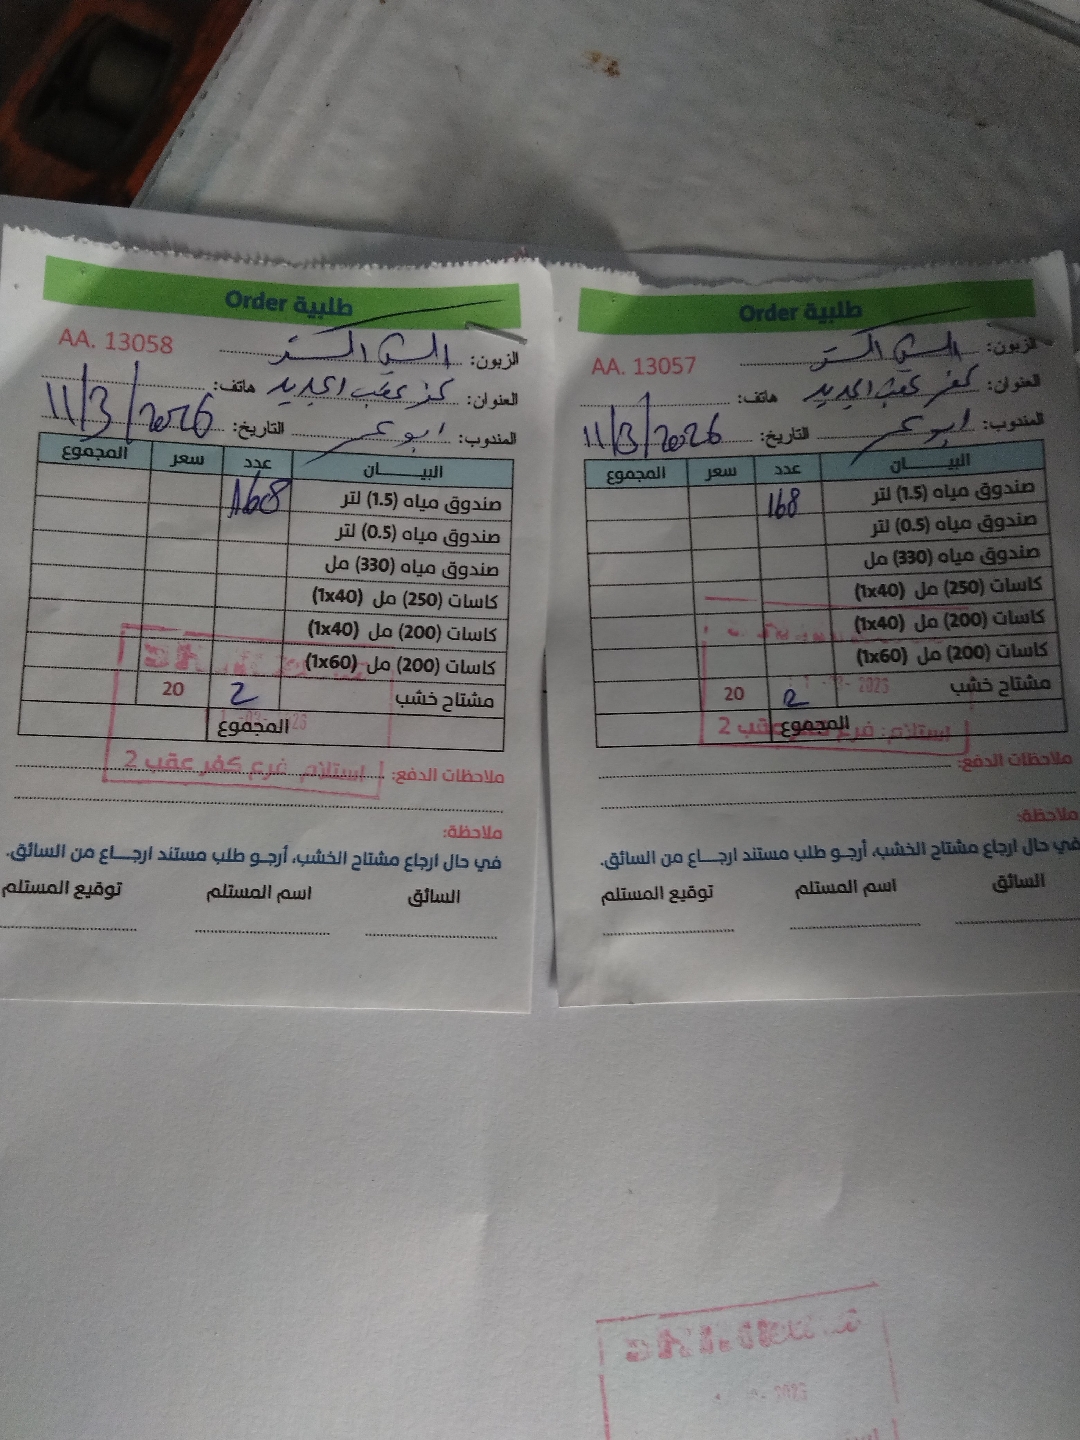 طلبية Order
AA. 13058
الزبون:
العنوان: كفر عقب الجديد هاتف:
المندوب: ابو عمر التاريخ: 11/3/2026
البيـــــان عدد سعر المجموع
صندوق مياه (1.5) لتر 168
صندوق مياه (0.5) لتر
صندوق مياه (330) مل
كاسات (250) مل (1x40)
كاسات (200) مل (1x40)
كاسات (200) مل (1x60)
مشتاح خشب 2 20
المجموع
استلام: فرع كفر عقب 2
ملاحظات الدفع:
ملاحظة:
في حال ارجاع مشتاح الخشب، أرجـو طلب مستند ارجــاع من السائق.
السائق اسم المستلم توقيع المستلم
طلبية Order
AA. 13057
الزبون:
العنوان: كفر عقب الجديد هاتف:
المندوب: ابو عمر التاريخ: 11/3/2026
البيـــــان عدد سعر المجموع
صندوق مياه (1.5) لتر 168
صندوق مياه (0.5) لتر
صندوق مياه (330) مل
كاسات (250) مل (1x40)
كاسات (200) مل (1x40)
كاسات (200) مل (1x60)
مشتاح خشب 2 20
المجموع
استلام: فرع كفر عقب 2
ملاحظات الدفع:
ملاحظة:
في حال ارجاع مشتاح الخشب، أرجـو طلب مستند ارجــاع من السائق.
السائق اسم المستلم توقيع المستلم